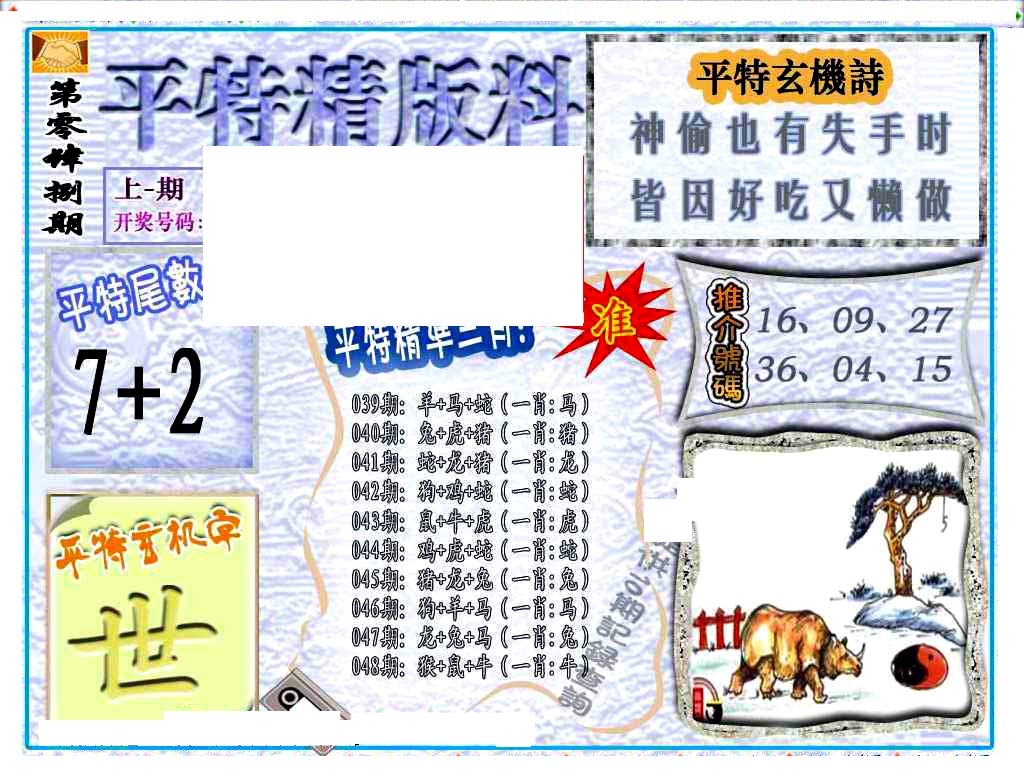 第零肆捌期
平特精版料
上-期
开奖号码:
平特玄機詩
神偷也有失手时
皆因好吃又懒做
平特尾數
7+2
平特精準三肖:
准
推介號碼
16、09、27
36、04、15
039期: 羊+马+蛇 (一肖:马)
040期: 兔+虎+猪 (一肖:猪)
041期: 蛇+龙+猪 (一肖:龙)
042期: 狗+鸡+蛇 (一肖:蛇)
043期: 鼠+牛+虎 (一肖:虎)
044期: 鸡+虎+蛇 (一肖:蛇)
045期: 猪+龙+兔 (一肖:兔)
046期: 狗+羊+马 (一肖:马)
047期: 龙+兔+马 (一肖:兔)
048期: 猴+鼠+牛 (一肖:牛)
平特玄机字
世
期記録查詢